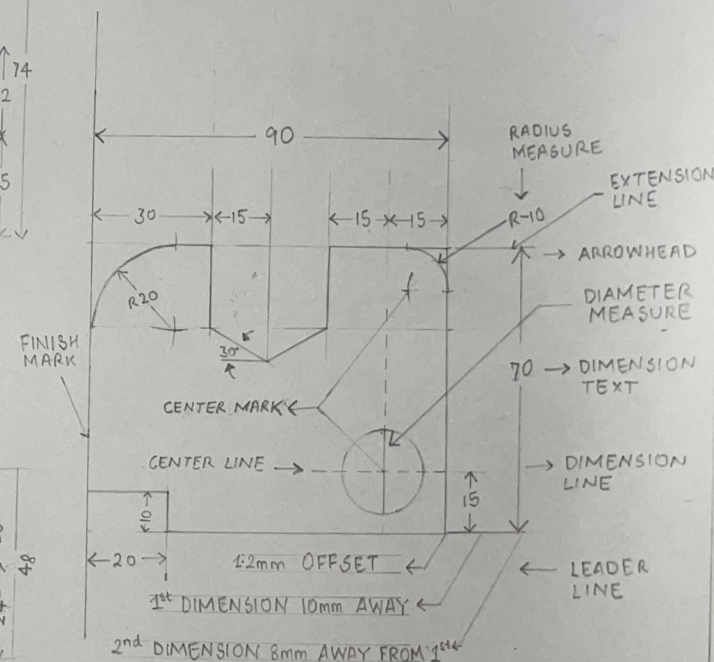 74
2
5
90
RADIUS
MEASURE
EXTENSION
LINE
30
15
15
15
R-10
ARROWHEAD
R20
DIAMETER
MEASURE
FINISH
MARK
30°
70
DIMENSION
TEXT
CENTER MARK
CENTER LINE
DIMENSION
LINE
15
10
48
20
1:2mm OFFSET
LEADER
LINE
1st DIMENSION 10mm AWAY
2nd DIMENSION 8mm AWAY FROM 1st